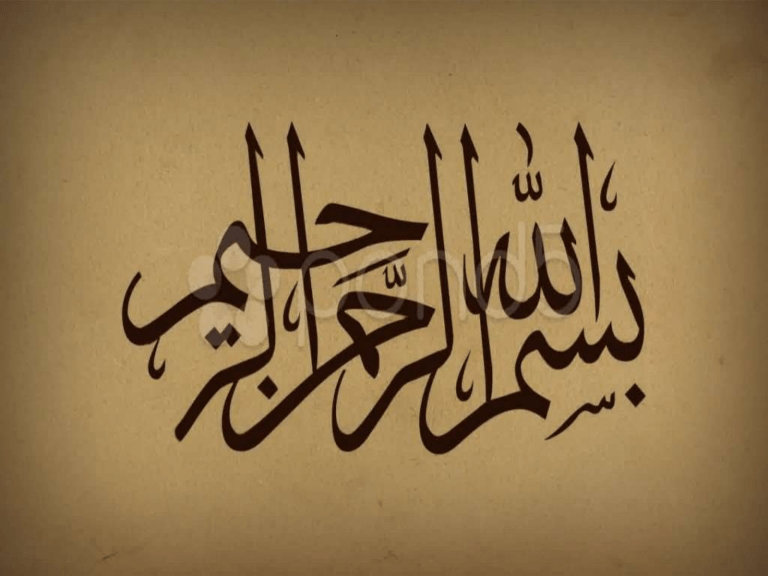 بسم الله الرحمن الرحيم
pond5